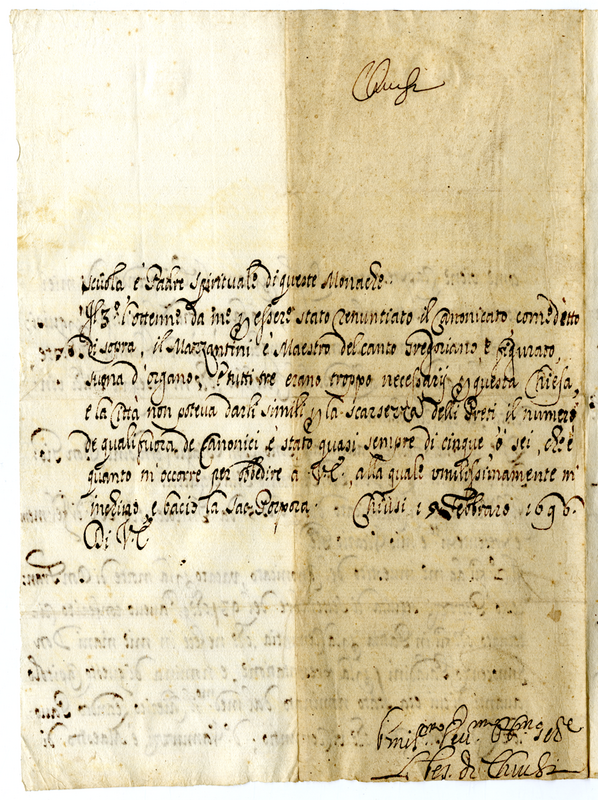 Chiusi
scuola e Padre Spirituale di queste Monache
Il 3.º l'ottenne da me p essere stato renuntiato il Canonicato come detto
di sopra, il Mazzantini è Maestro del canto Gregoriano e figurato,
suona d'organo, e tutti tre erano troppo necessarij p questa Chiesa,
e la Città non poteva darli simili p la scarsezza delli Preti il numero
de quali fuora de Canonici è stato quasi sempre di cinque ò sei, che è
quanto m'occorre per obbedire à V.E. alla quale umilissimamente m
inchino, e bacio la Sac. Porpora Chiusi 19 Febbraro 1696.
Di V.E.
Ves. di Chiusi